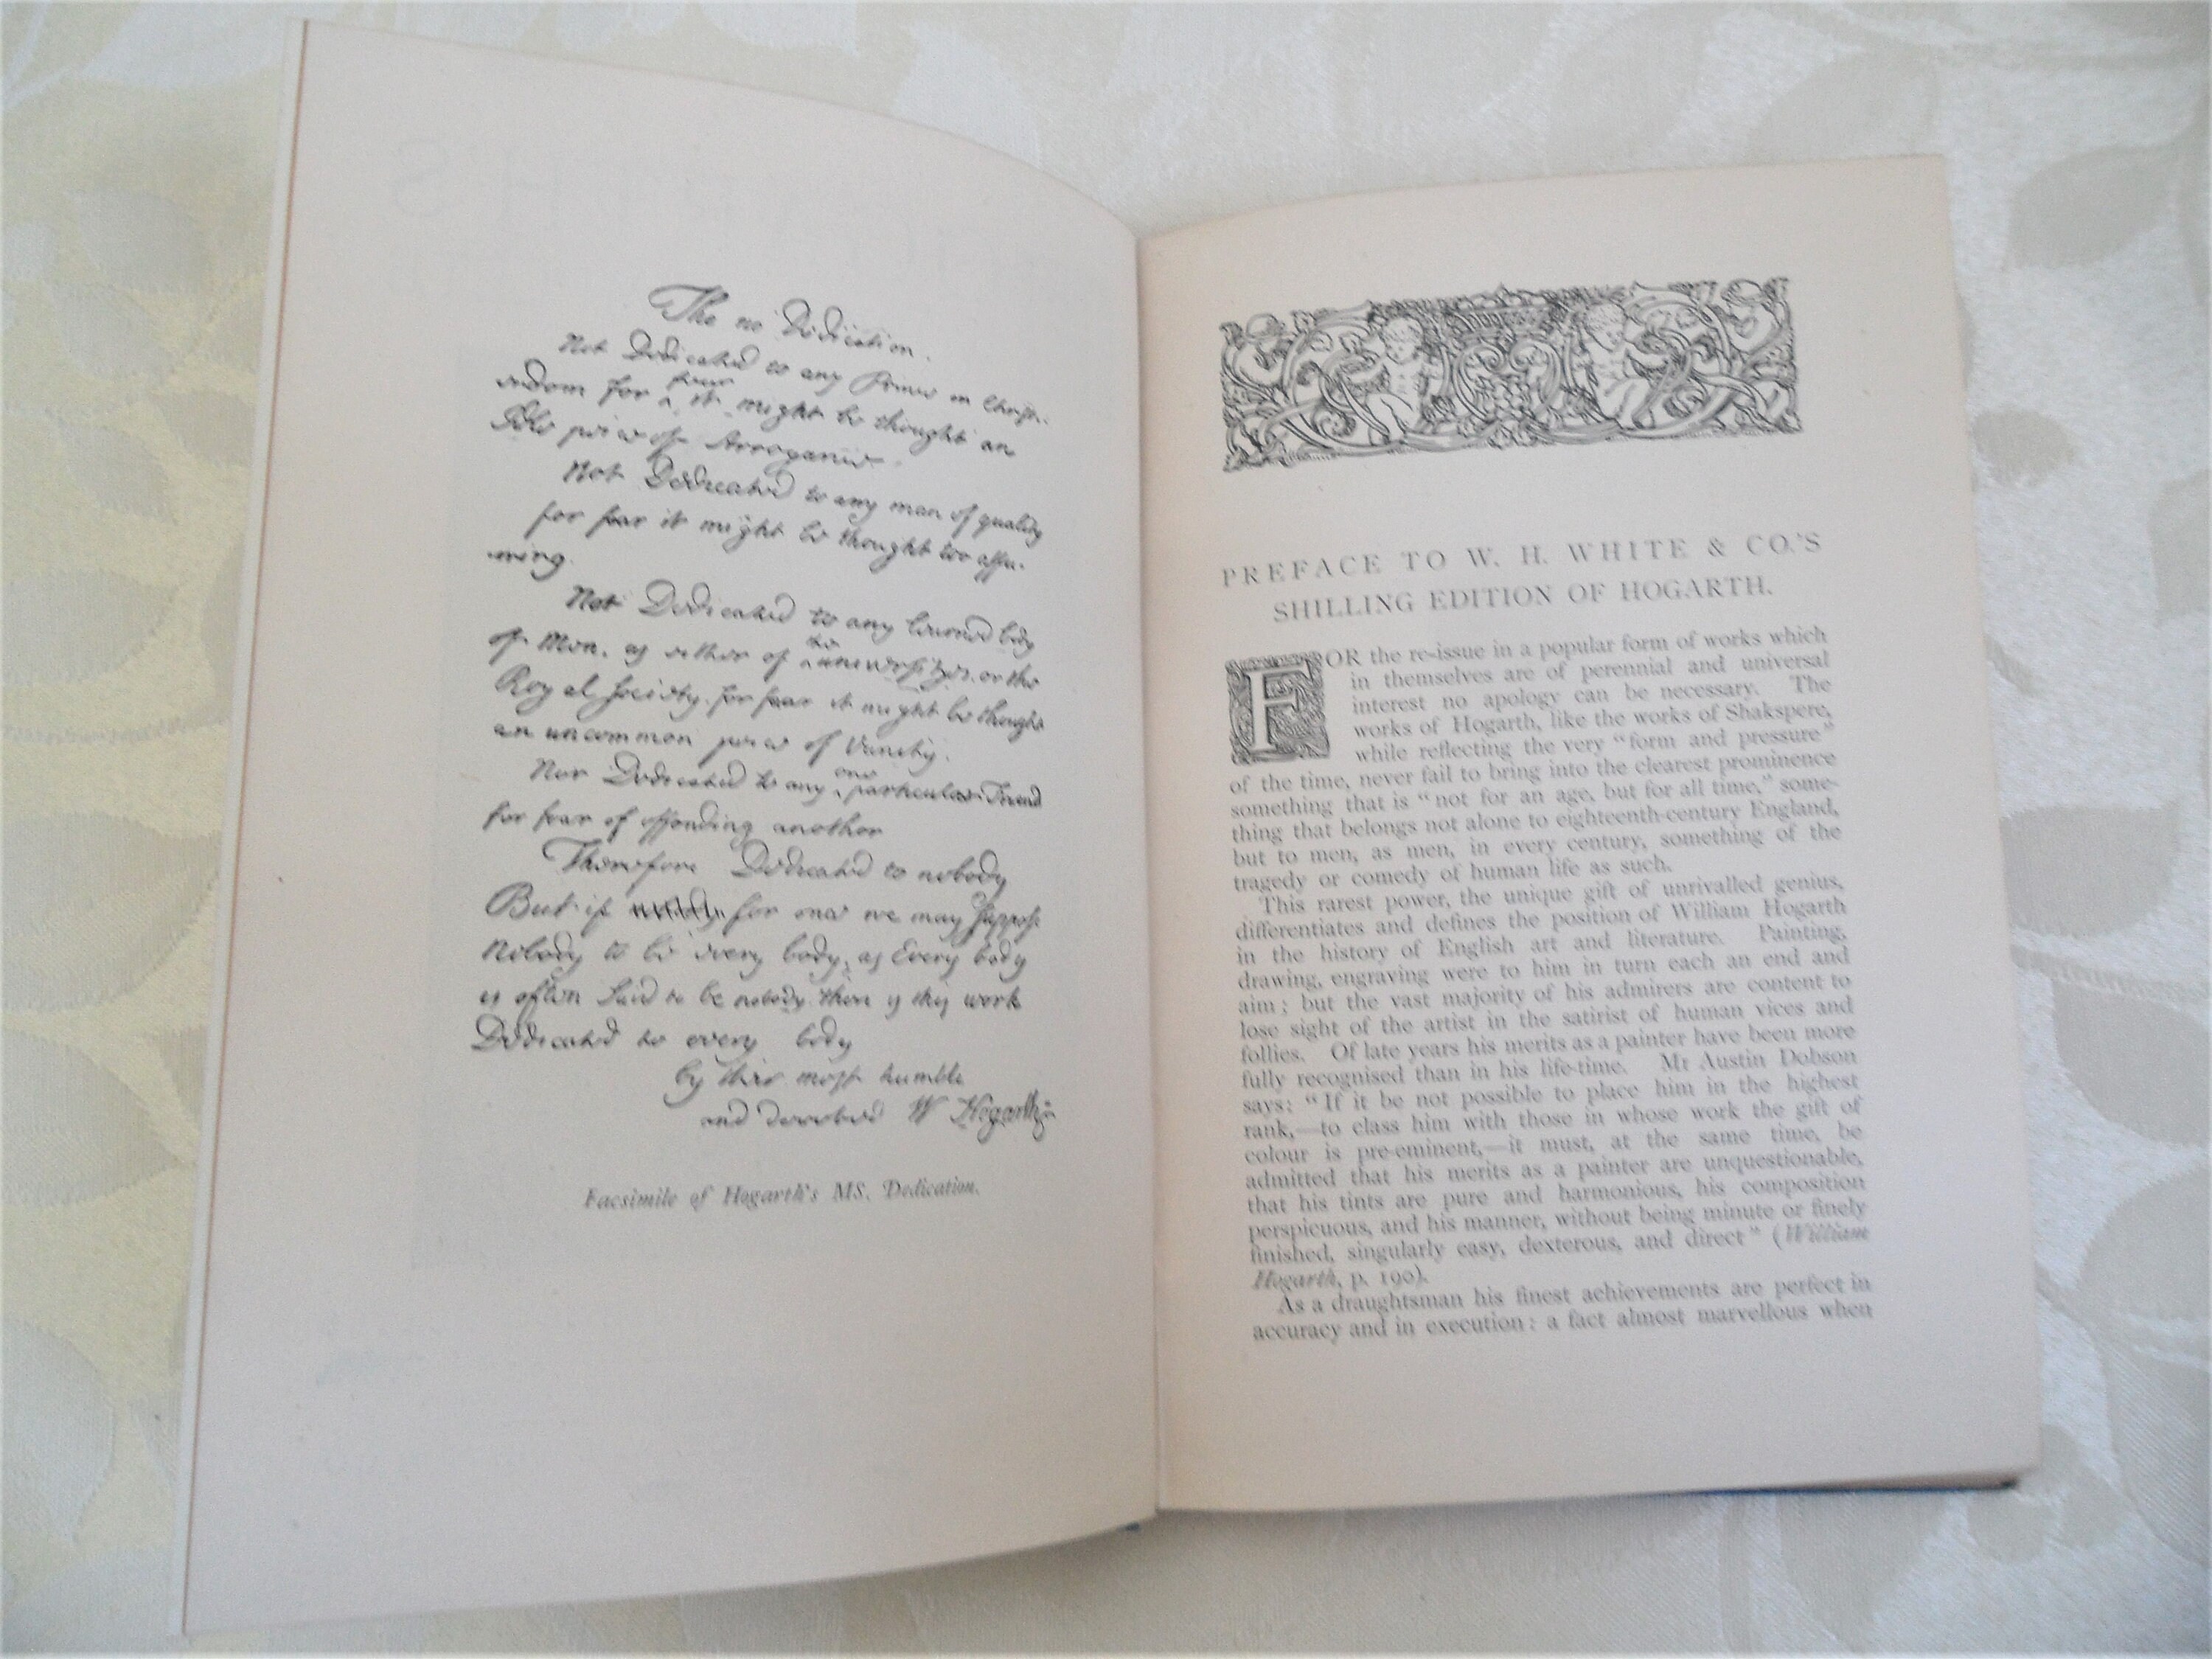 The no Dedication.
Not Dedicated to any Prince in Christ-
endom for fear it might be thought an
Idle piece of Arrogance.
Not Dedicated to any man of quality
for fear it might be thought too assu-
ming.
Not Dedicated to any learned body
of Men, as either of the universitys. or the
Royal Society. for fear it might be thought
an uncommon piece of Vanity.
Nor Dedicated to any one particular Friend
for fear of offending another
Therefore Dedicated to nobody
But if for once we may suppose
Nobody to be every body, as Every body
is often said to be nobody. then is this work
Dedicated to every body
by their most humble
and devoted W Hogarth
Facsimile of Hogarth's MS. Dedication.
PREFACE TO W. H. WHITE & CO.'S
SHILLING EDITION OF HOGARTH.
FOR the re-issue in a popular form of works which
in themselves are of perennial and universal
interest no apology can be necessary. The
works of Hogarth, like the works of Shakspere,
while reflecting the very "form and pressure"
of the time, never fail to bring into the clearest prominence
something that is "not for an age, but for all time," some-
thing that belongs not alone to eighteenth-century England,
but to men, as men, in every century, something of the
tragedy or comedy of human life as such.
This rarest power, the unique gift of unrivalled genius,
differentiates and defines the position of William Hogarth
in the history of English art and literature. Painting,
drawing, engraving were to him in turn each an end and
aim; but the vast majority of his admirers are content to
lose sight of the artist in the satirist of human vices and
follies. Of late years his merits as a painter have been more
fully recognised than in his life-time. Mr Austin Dobson
says: "If it be not possible to place him in the highest
rank,—to class him with those in whose work the gift of
colour is pre-eminent,—it must, at the same time, be
admitted that his merits as a painter are unquestionable,
that his tints are pure and harmonious, his composition
perspicuous, and his manner, without being minute or finely
finished, singularly easy, dexterous, and direct" (William
Hogarth, p. 190).
As a draughtsman his finest achievements are perfect in
accuracy and in execution: a fact almost marvellous when